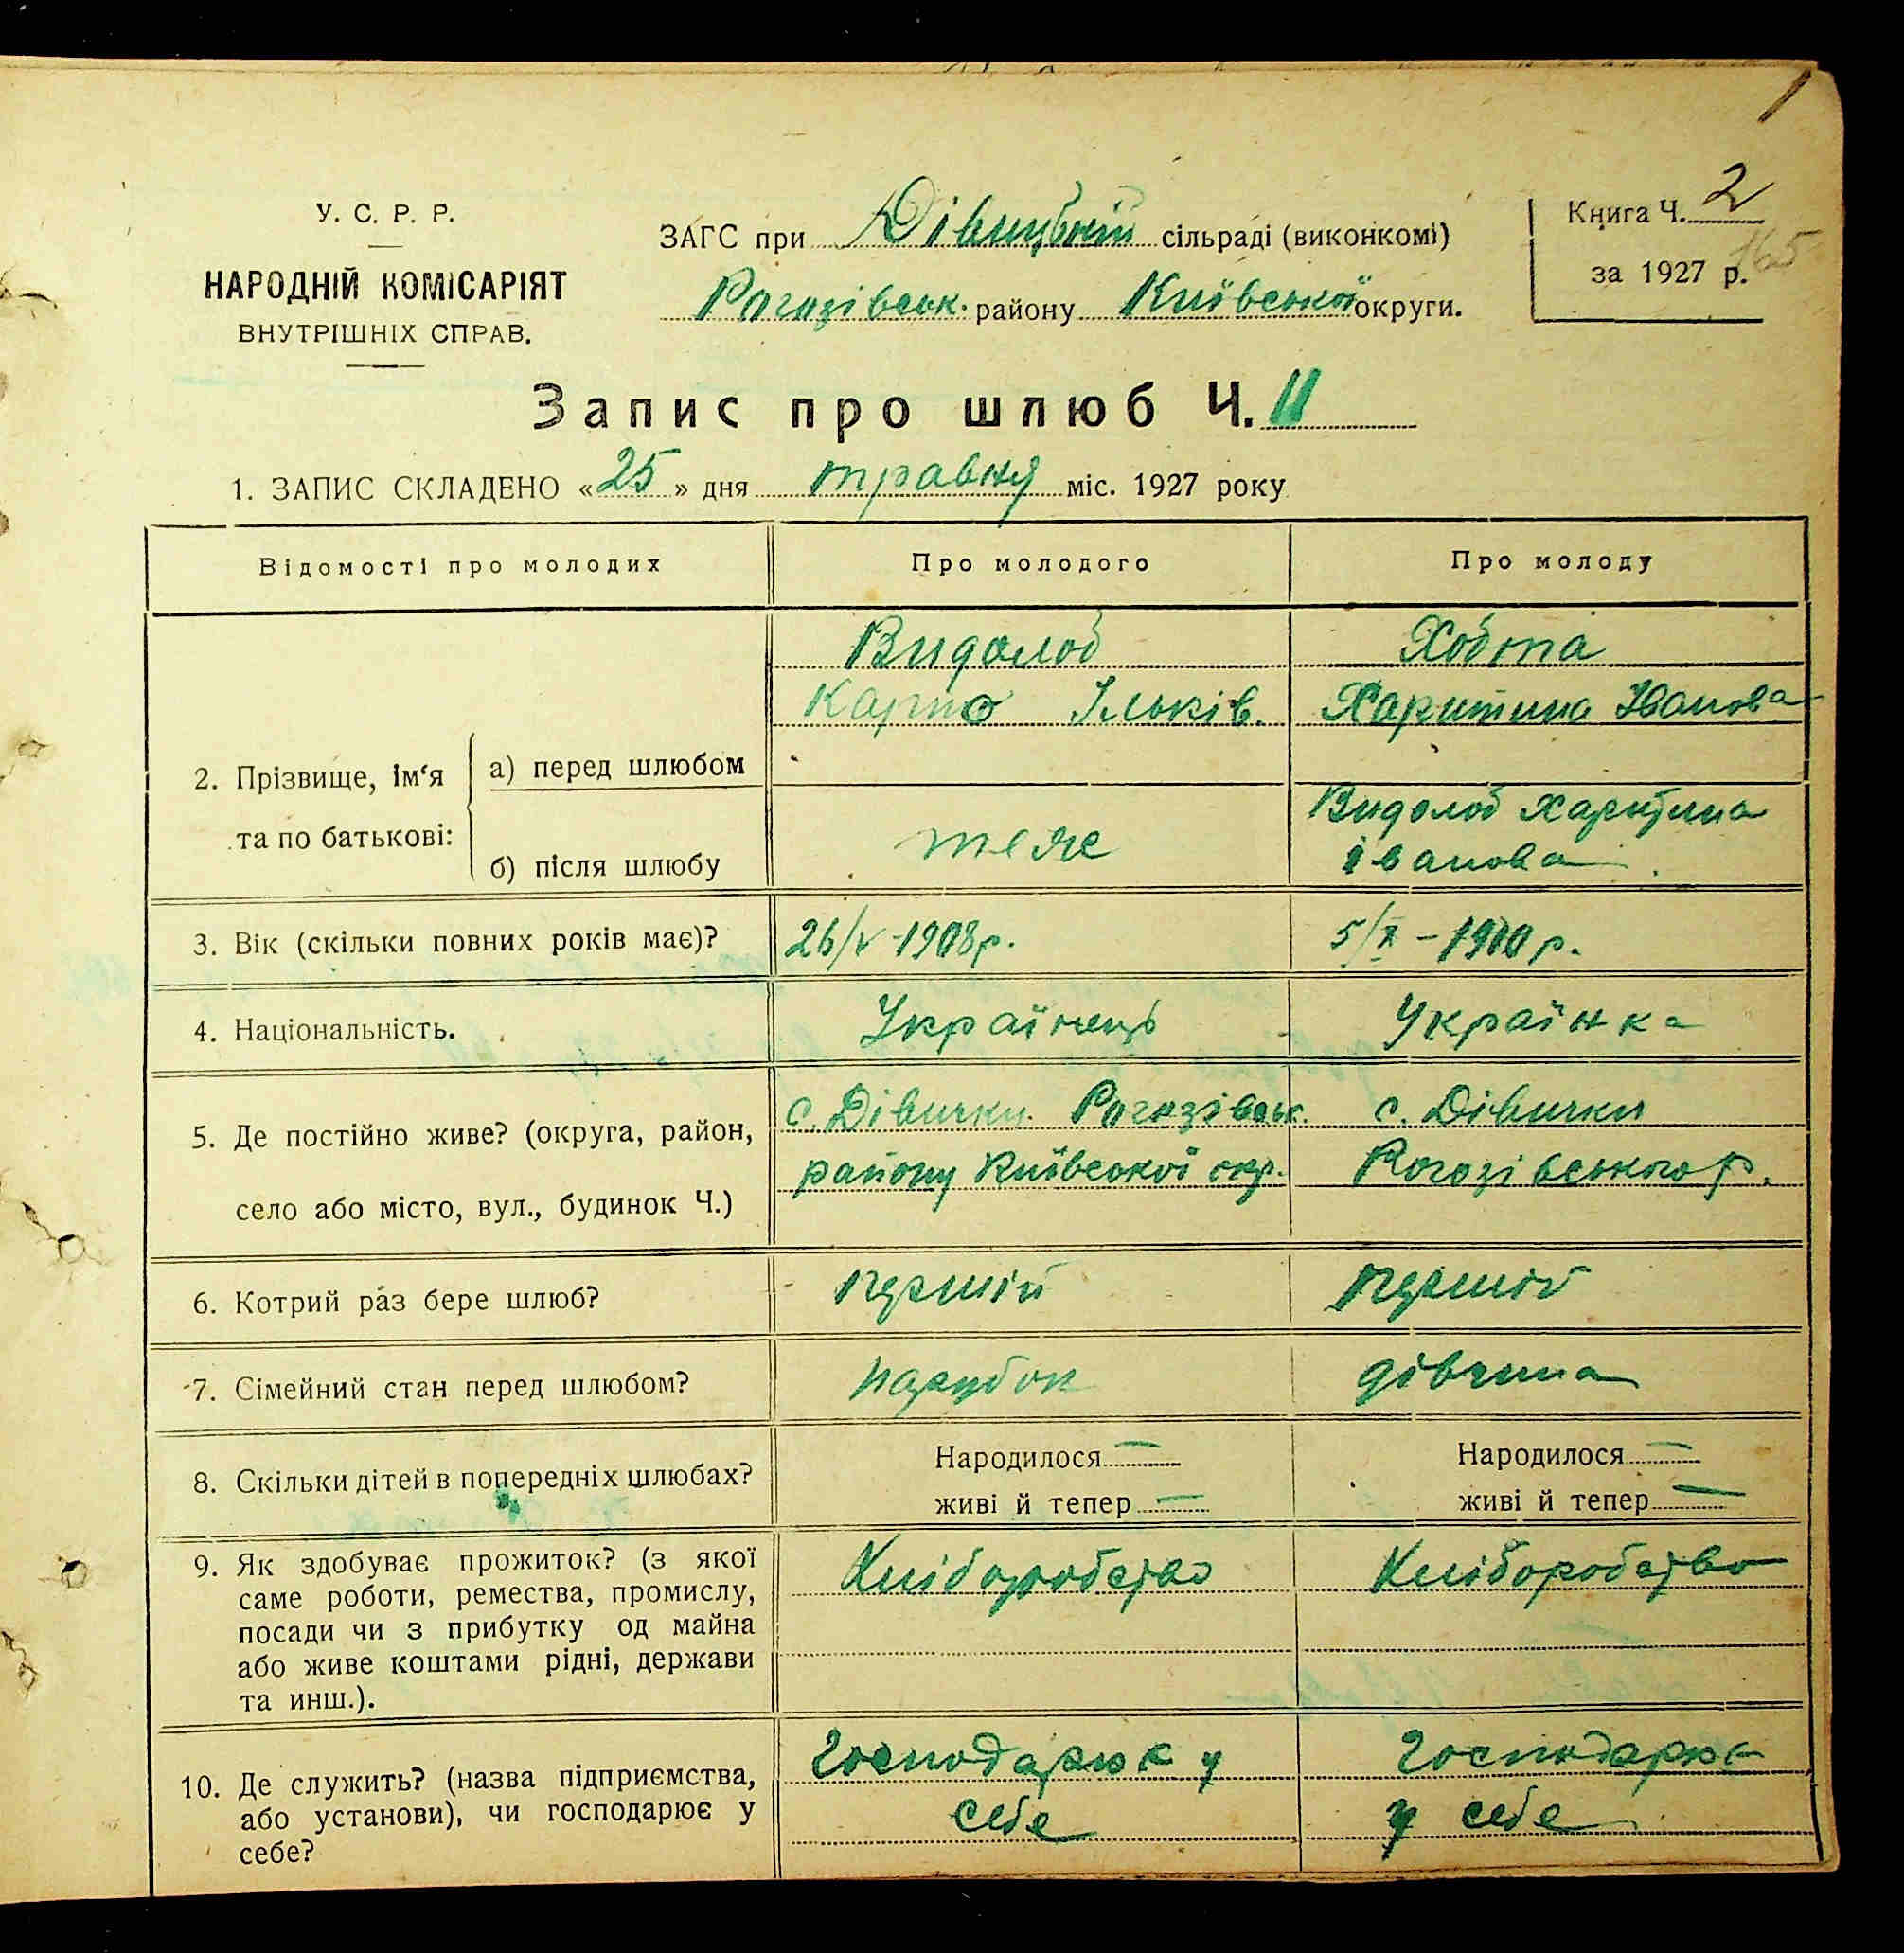 1
У. С. Р. Р.
НАРОДНІЙ КОМІСАРІЯТ
ВНУТРІШНІХ СПРАВ.
ЗАГС при Дівицькій сільраді (виконкомі)
Рогозівськ. району Київської округи.
Книга Ч. 2
165
за 1927 р.
Запис про шлюб Ч. 11
1. ЗАПИС СКЛАДЕНО «25» дня травня міс. 1927 року
Відомості про молодих
Про молодого
Про молоду
2. Прізвище, ім‘я та по батькові:
а) перед шлюбом
Видолоб
Карпо Ільків.
Хобта
Харитина Іванова
б) після шлюбу
теж
Видолоб Харитина
іванова
3. Вік (скільки повних років має)?
26/V-1908р.
5/X - р.
4. Національність.
Українець
Українка
5. Де постійно живе? (округа, район,
село або місто, вул., будинок Ч.)
с. Дівички Рогозівськ.
району Київської окр.
с. Дівички
Рогозівського р.
6. Котрий раз бере шлюб?
перший
перший
7. Сімейний стан перед шлюбом?
парубок
дівчина
8. Скільки дітей в попередніх шлюбах?
Народилося —
живі й тепер —
Народилося —
живі й тепер —
9. Як здобуває прожиток? (з якої
саме роботи, ремества, промислу,
посади чи з прибутку од майна
або живе коштами рідні, держави
та инш.).
Хліборобство
Хліборобство
10. Де служить? (назва підприємства,
або установи), чи господарює у
себе?
Господарює у
себе
Господарює
у себе